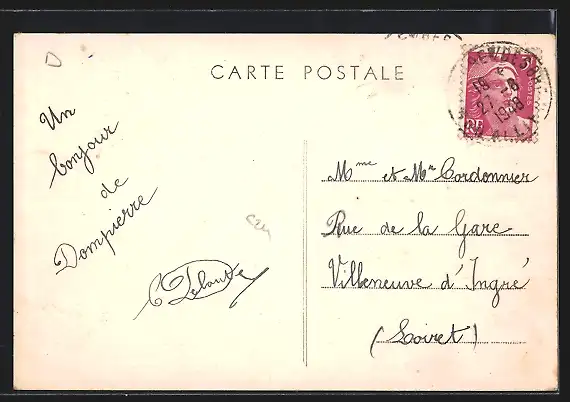 CARTE POSTALE
Un
bonjour
de
Dompierre
Mme et Mr Cordonnier
Rue de la Gare
Villeneuve d'Ingré
(Loiret)
POSTES
RF
18 H
27 -8
1948